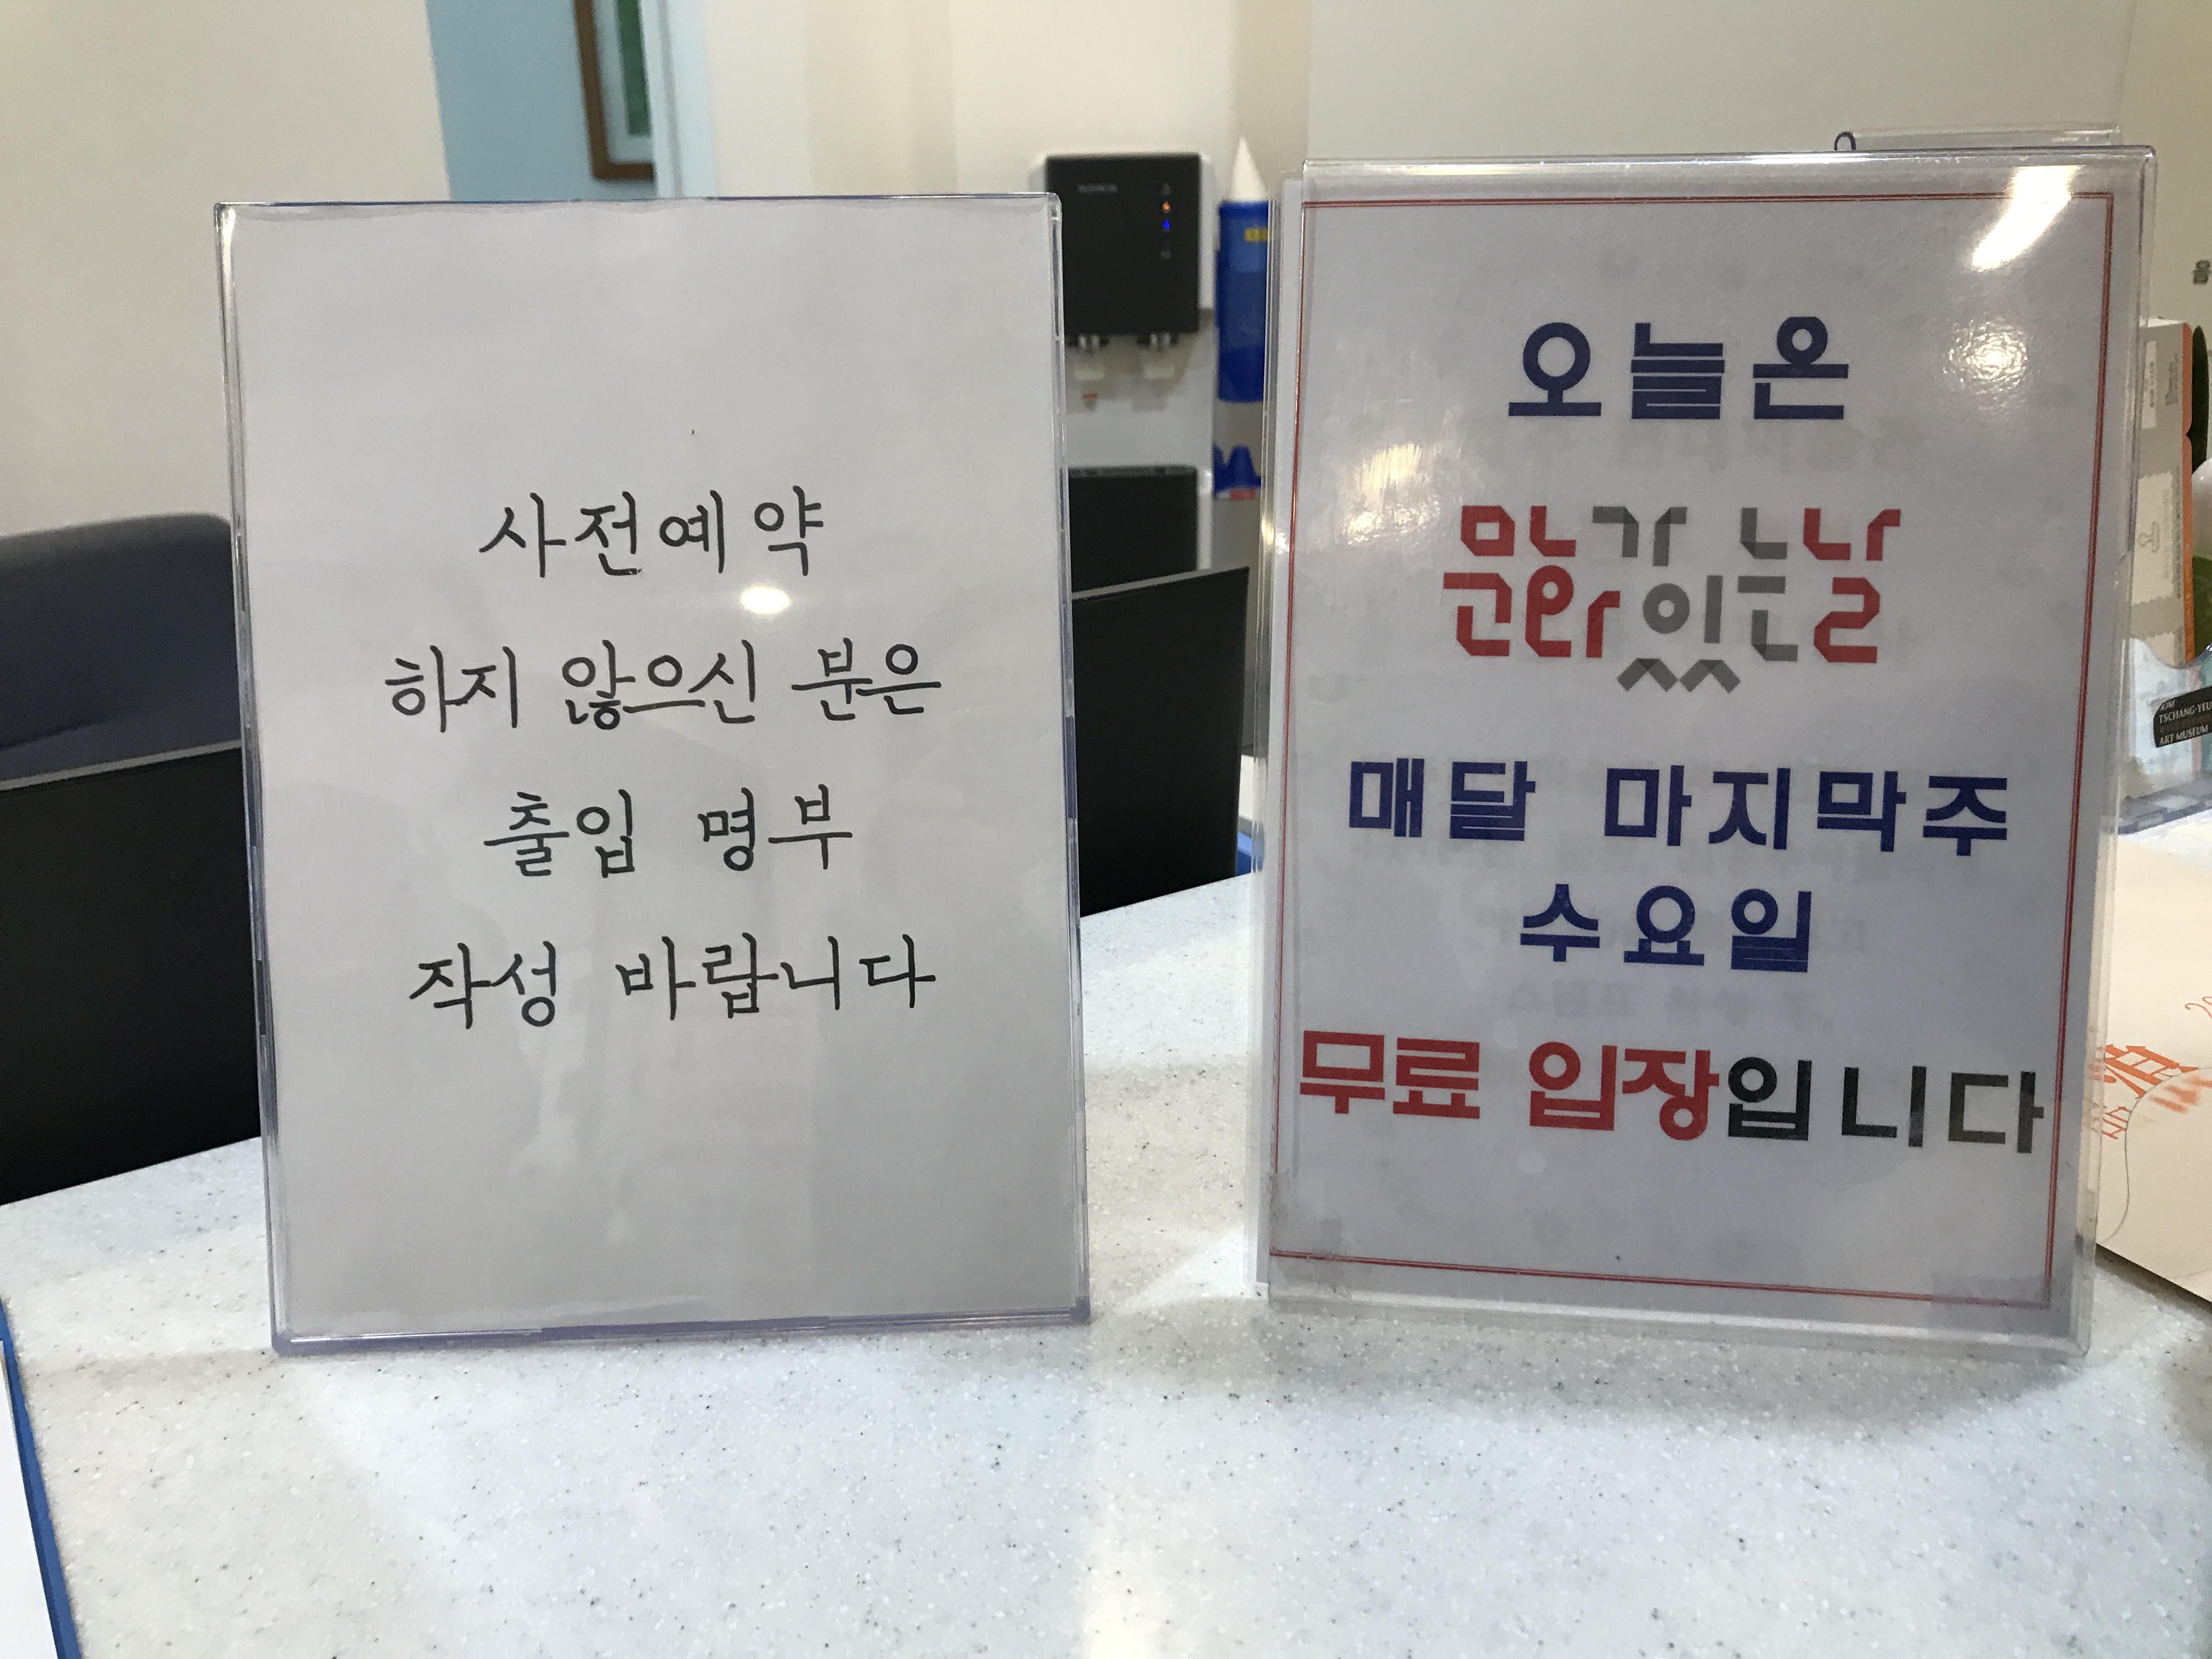 사전예약
하지 않으신 분은
출입 명부
작성 바랍니다
오늘은
문화가 있는 날
매달 마지막주
수요일
무료 입장입니다
TSCHANG-YEU
ART MUSEUM